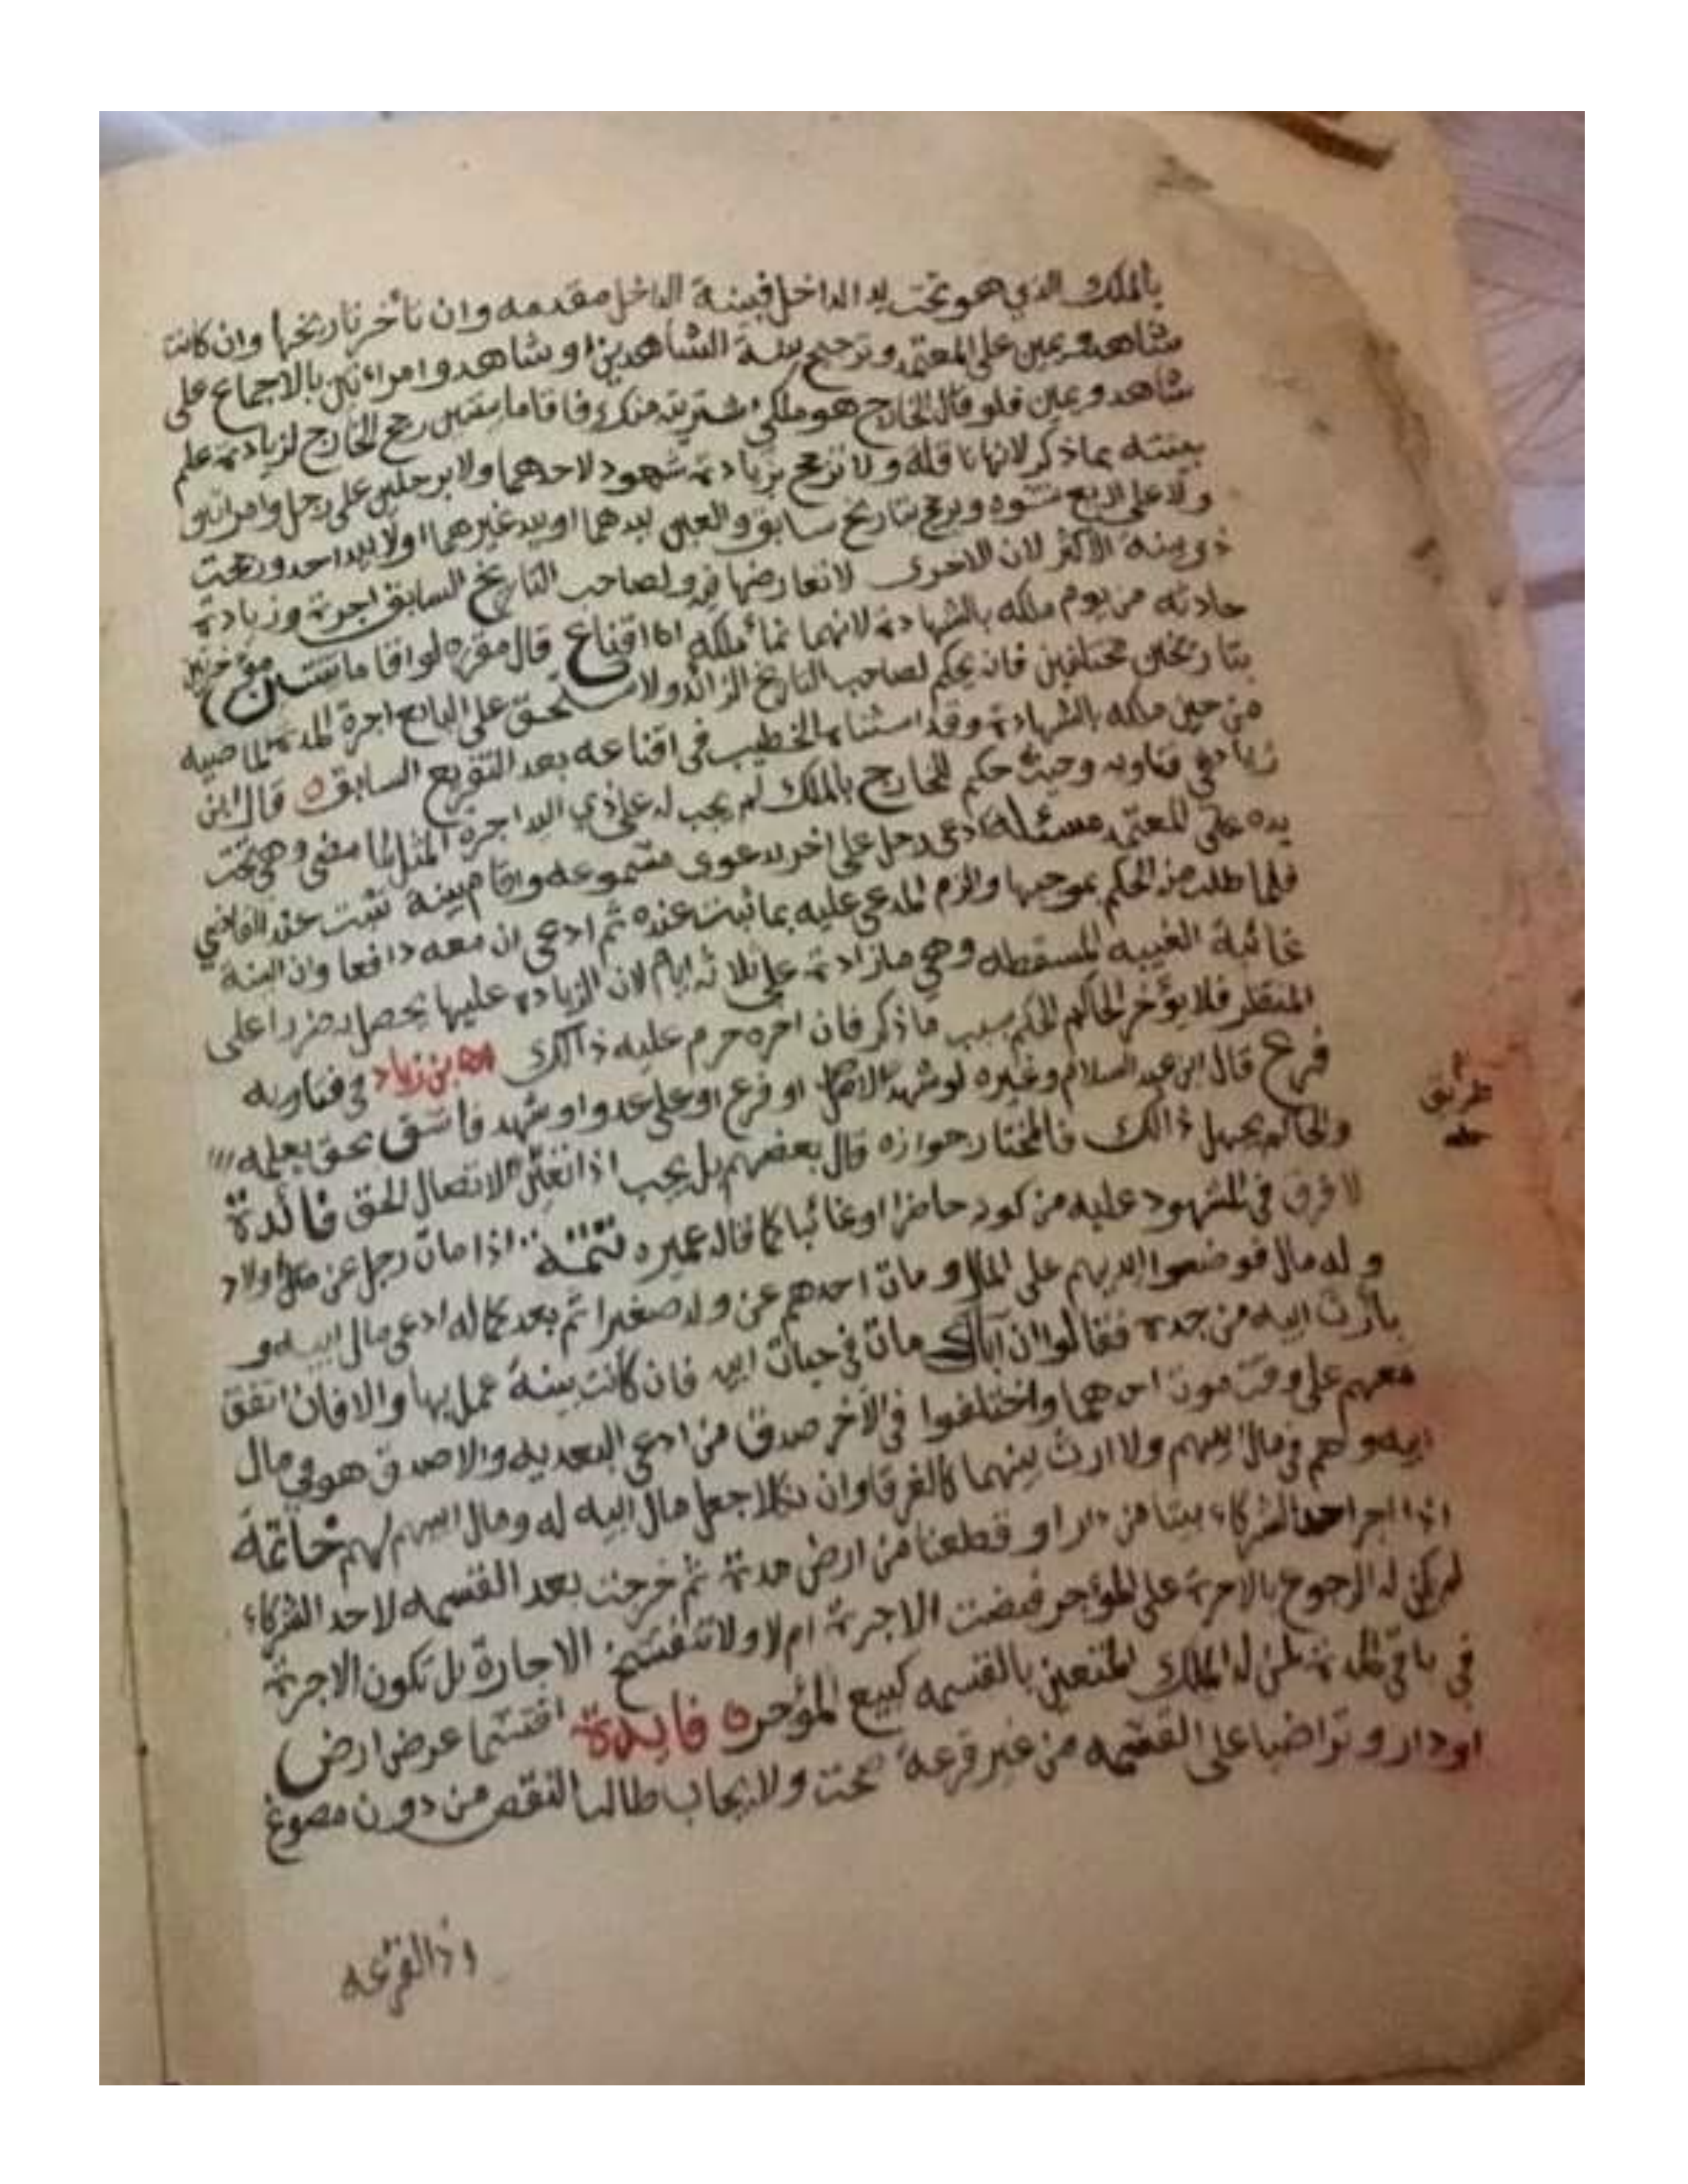 بالملك الذي هو تحت يد الداخل فبينة الداخل مقدمه وان تأخر تاريخها وان كانت
شاهد ويمين على المعتمد وترجيح بينة الشاهدين او شاهد وامراتين بالاجماع على
شاهد ويمين فلو قال الخارج هو ملكي اشتريته منك فاقاما بينتين رجح الخارج لزيادة علم
بينته بما ذكر لانها ناقلة ولا ترجح بزيادة شهود لاحدهما ولا برجلين على رجل وامراتين
ولا على اربع نسوه ويرجح بتاريخ سابق والعين بيدهما او بيد غيرهما او لا بيد احد ورجحت
ذو بينة الاكثر لان الاخرى لا تعارضها فيه ولصاحب التاريخ السابق اجرة وزيادة
حادثه من يوم ملكه بالشهادة لانهما نماء ملكه اقناع قال لو اقاما بينتين مؤرختين
بتاريخين مختلفين فانه يحكم لصاحب التاريخ الزائد ولا يستحق على البائع اجرة المدة الماضيه
من حين ملكه بالشهادة وقد استثناه الخطيب في اقناعه بعد التفريع السابق ه قال ابن
زياد في فتاويه وحيث حكم للخارج بالملك لم يجب له على ذي اليد اجرة المثل لما مضى وهي تحت
يده على المعتمد مسئلة ادعى رجل على اخر بدعوى مسموعه واقام بينة ثبت عند القاضي
فلما طلب منه الحكم بموجبها والزم المدعى عليه بما ثبت عنده ثم ادعى ان معه دافعا وان البينة
غائبة الغيبه المسقطه وهي ما زادة على ثلاثة ايام لان الزيادة عليها يحصل به ضررا على
المنتظر فلا يؤخر الحاكم الحكم بسبب ما ذكر فان اخره حرم عليه ذالك اه بن زياد في فتاويه
فرع قال ابن عبد السلام وغيره لو شهد لاصل او فرع او على عدو او شهد فاسق بحق يعلمه
والحاكم يجهل ذالك فالمختار جوازه قال بعضهم بل يجب اذا تعين لايصال الحق فائدة
لا فرق في المشهود عليه من كونه حاضرا او غائبا كما قاله عميره تتمة اذا مات رجل عن اولاد
وله مال فوضعوا ايديهم على المال ومات احدهم عن ولد صغير ثم بعد كماله ادعى مال ابيه و
بارث ابيه من جده فقالوا ان اباك مات في حيات ابيه فان كانت بينة عمل بها والا فان اتفق
معهم على وقت موت احدهما واختلفوا في الاخر صدق من ادعى البعديه والا صدق هو في مال
ابيه وهم في مال ابيهم ولا ارث بينهما كالغرقا وان نكلا جعل مال ابيه له ومال ابيهم لهم خاتمة
اذا اجر احد الشركاء بيتا من دار او قطعنا من ارض مدة ثم خرجت بعد القسمه لاحد الشركاء
لم يكن له الرجوع بالاجرة على المؤجر قبضت الاجرة ام لا ولا تنفسخ الاجارة بل تكون الاجرة
في باقي المدة لمن له الملك المتعين بالقسمه كبيع المؤجر ه فايدة اقتسما عرض ارض
او دار وتراضيا على القسمه من غير قرعة صحت ولا يجاب طالبا النقص من دون مصوغ
طريق
وذالقرعه